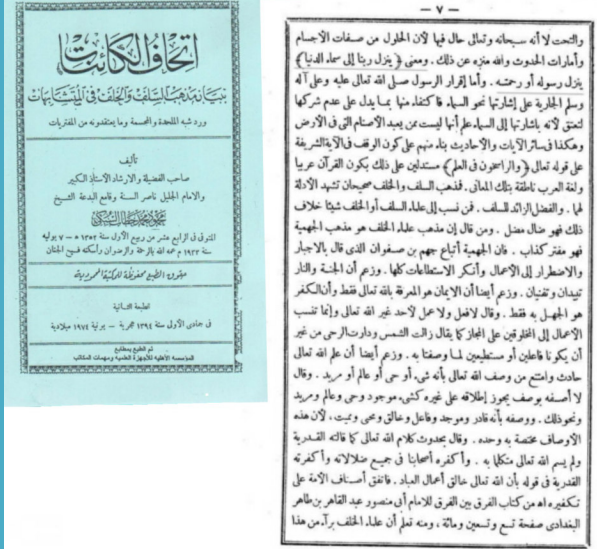 اتحاف الكائنات
ببيان مذهب السلف والخلف في المتشابهات
ورد شبه الملحدة والمجسمة وما يعتقدونه من المفتريات
تأليف
صاحب الفضيلة والارشاد الأستاذ الكبير
والامام الجليل ناصر السنة وقامع البدعة الشيخ
محمود محمد خطاب السبكي
المتوفى في الرابع عشر من ربيع الأول سنة ١٣٥٢ هـ – ٧ يوليه
سنة ١٩٣٣ م عمه الله بالرحمة والرضوان وأسكنه فسيح الجنان
حقوق الطبع محفوظة للمكتبة المحمودية
الطبعة الثانية
في جمادى الأولى سنة ١٣٩٤ هجرية – يونية ١٩٧٤ ميلادية
تم الطبع بمطابع
المؤسسه الأهلية للأجهزة العلميه ومهمات المكاتب
— ٧ —
والتحت لا أنه سبحانه وتعالى حال فيها لأن الحلول من صفات الأجسام
وأمارات الحدوث والله منزه عن ذلك . ومعنى (ينزل ربنا إلى سماء الدنيا)
ينزل رسوله أو رحمته . وأما إقرار الرسول صلى الله تعالى عليه وعلى آله
وسلم الجارية على إشارتها نحو السماء فاكتفاء منها بما يدل على عدم شركها
لتعتق لأنه باشارتها إلى السماء علم أنها ليست ممن يعبد الأصنام التى فى الأرض
وهكذا فى سائر الآيات والأحاديث بناء منهم على كون الوقف فى الآية الشريفة
على قوله تعالى (والراسخون فى العلم) مستدلين على ذلك بكون القرآن عربيا
ولغة العرب ناطقة بتلك المعانى . فمذهب السلف والخلف صحيحان تشهد الأدلة
لهما . والفضل الزائد للسلف . فمن نسب إلى علماء السلف أو الخلف شيئا خلاف
ذلك فهو ضال مضل . ومن قال إن مذهب علماء الخلف هو مذهب الجهمية
فهو مفتر كذاب . فان الجهمية أتباع جهم بن صفوان الذى قال بالاجبار
والاضطرار إلى الأعمال وأنكر الاستطاعات كلها . وزعم أن الجنة والنار
تبيدان وتفنيان . وزعم أيضا أن الايمان هو المعرفة بالله تعالى فقط وأن الكفر
هو الجهل به فقط . وقال لا فعل ولا عمل لأحد غير الله تعالى وإنما تنسب
الأعمال إلى المخلوقين على المجاز كما يقال زالت الشمس ودارت الرحى من غير
أن يكونا فاعلين أو مستطيعين لما وصفتا به . وزعم أيضا أن علم الله تعالى
حادث وامتنع من وصف الله تعالى بأنه شىء أو حى أو عالم أو مريد . وقال
لا أصفه بوصف يجوز إطلاقه على غيره كشىء موجود وحى وعالم ومريد
ونحو ذلك . ووصفه بأنه قادر وموجد وفاعل وخالق ومحى ومميت . لأن هذه
الأوصاف مختصة به وحده . وقال بحدوث كلام الله تعالى كما قالته القدرية
ولم يسم الله تعالى متكلما به . وأكفره أصحابنا فى جميع ضلالاته وأكفرته
القدرية فى قوله بأن الله تعالى خالق أعمال العباد . فاتفق أصناف الأمة على
تكفيره اه من كتاب الفرق بين الفرق للامام أبى منصور عبد القاهر بن طاهر
البغدادى صفحة تسع وتسعين ومائة . ومنه تعلم أن علماء الخلف برآء من هذا